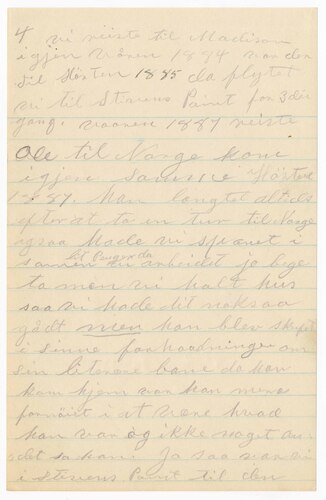 4 vi reiste til Madison
igjen vaaren 1884 var der
til Høsten 1885 da flyttet
vi til Stevens Point for 3die
gang. vaaren 1887 reiste
Ole til Norge kom
igjen samme Høsten
1887. han længtet altid
efter at ta en tur til Norge
ogsaa hade vi sparet i
sammen lit Penge da vi arbeidet jo bege
to men vi halt hus
saa vi hade dit noksaa
gådt men han blev
i sinne om
sin bane da han
kom hjem var han mere
fornöiet i at være hvad
han var og ikke noget an
det sa han. Ja saa var vi
i Stevens Point til den